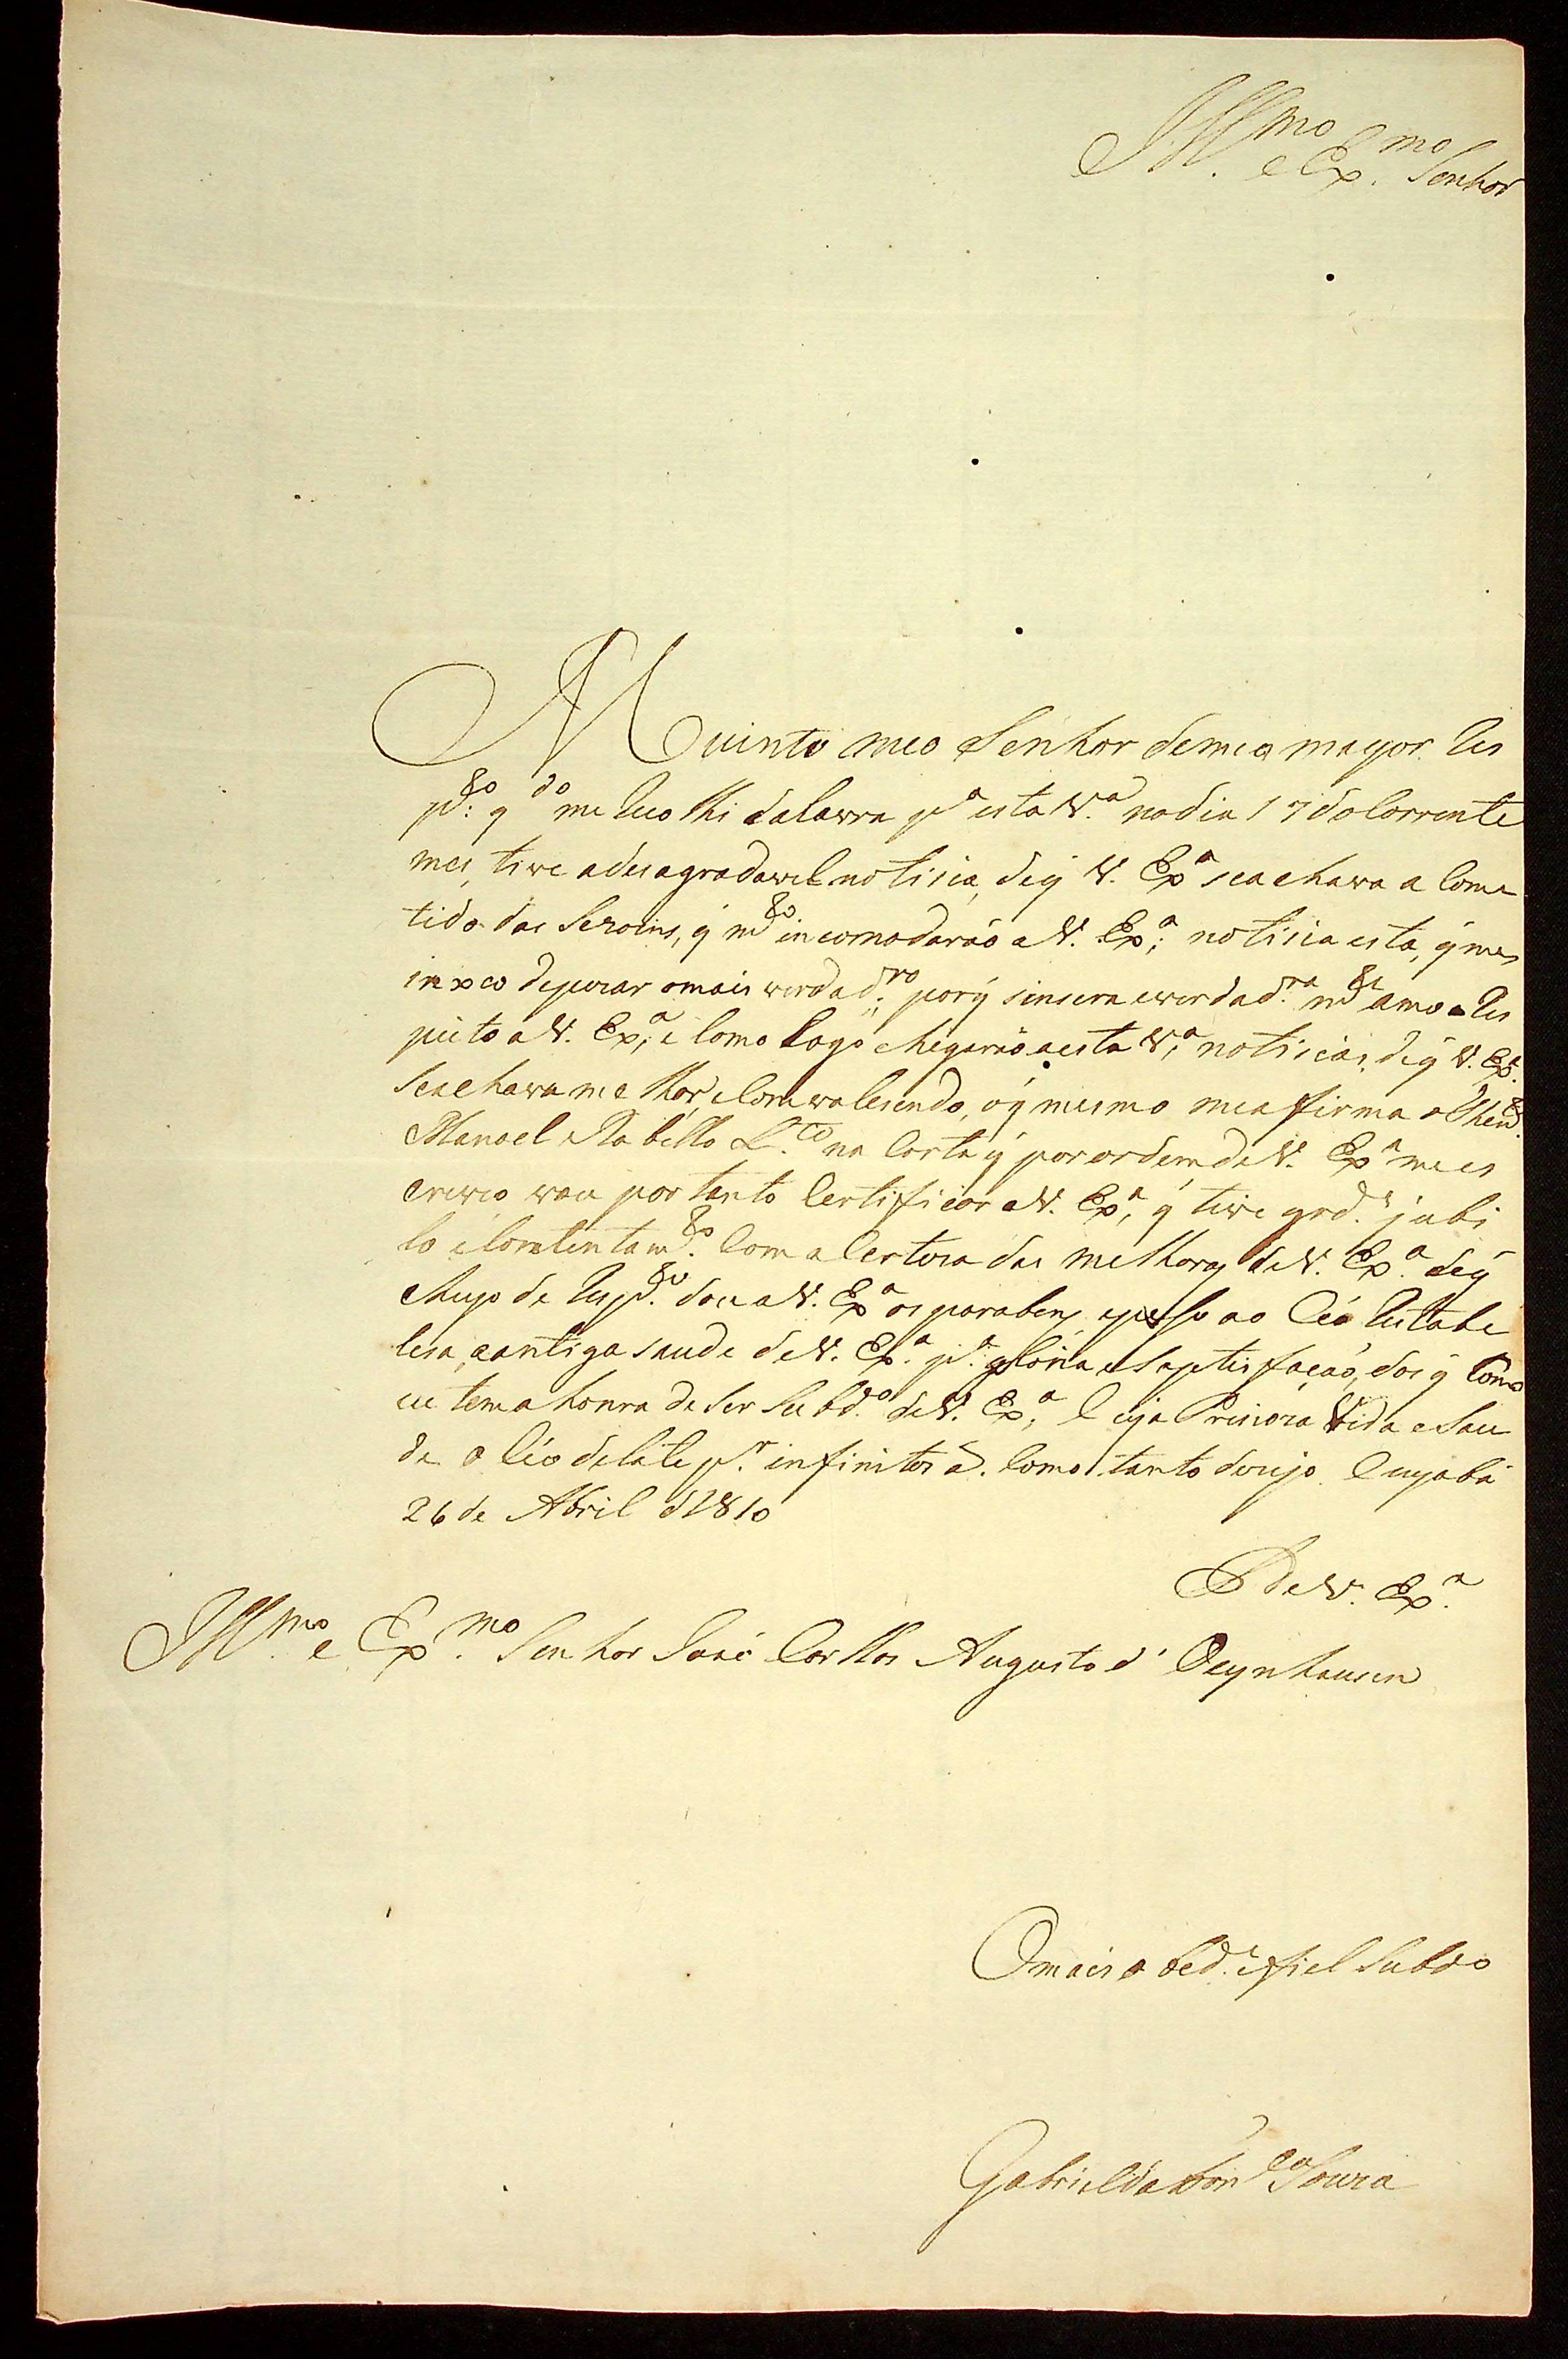 Ill.mo e Ex.mo Senhor
Muinto meo Senhor demeo mayor Res
p.to: q.do me recolhi dalavra p.a esta V.a no dia 17 do Corrente
mes, tive a desagradavel notisia, deq̃ V. Ex.a se achava a Come
tido das Sezoins, q̃ m.to incomodaráo a V. Ex.a; notisia esta, q̃ me
inxeo de pezar o mais verdad.ro porq̃ sinsera e verdad.ra m.te amo e Res
peito a V. Ex.a; e Como Logo chegaráo a esta V.a notisias, deq̃ V. Ex.a
se achava melhor, e Comvalesendo, o q̃ mesmo me afirma o Then.te
Manoel Rabello L.te na Carta q̃ por ordem de V. Ex.a me es
creveo vou por tanto Certificar a V. Ex.a, q̃ tive grd.e jubi
lo e Comtentam.to Com a Certeza das melhoras de V. Ex.a deq̃
Cheyo de Resp.to dou a V. Ex.a os parabens, e pesso ao Céo Restabe
lesa, a antiga saude de V. Ex.a p.a gloria e saptisfação, dos q̃ Como
eu tem a honra de Ser Subd.o de V. Ex.a, Cuja Preciora Vida e Sau
de o Céo delate p.r infinitos a. Como tanto dezejo. Cuyabá
26 de Abril d 1810
De V. Ex.a
Ill.mo e Ex.mo Senhor Joaó Carllos Augusto d' Oeynhausen
O mais obed.e e fiel Subdo
Gabriel da Fon.ca Souza